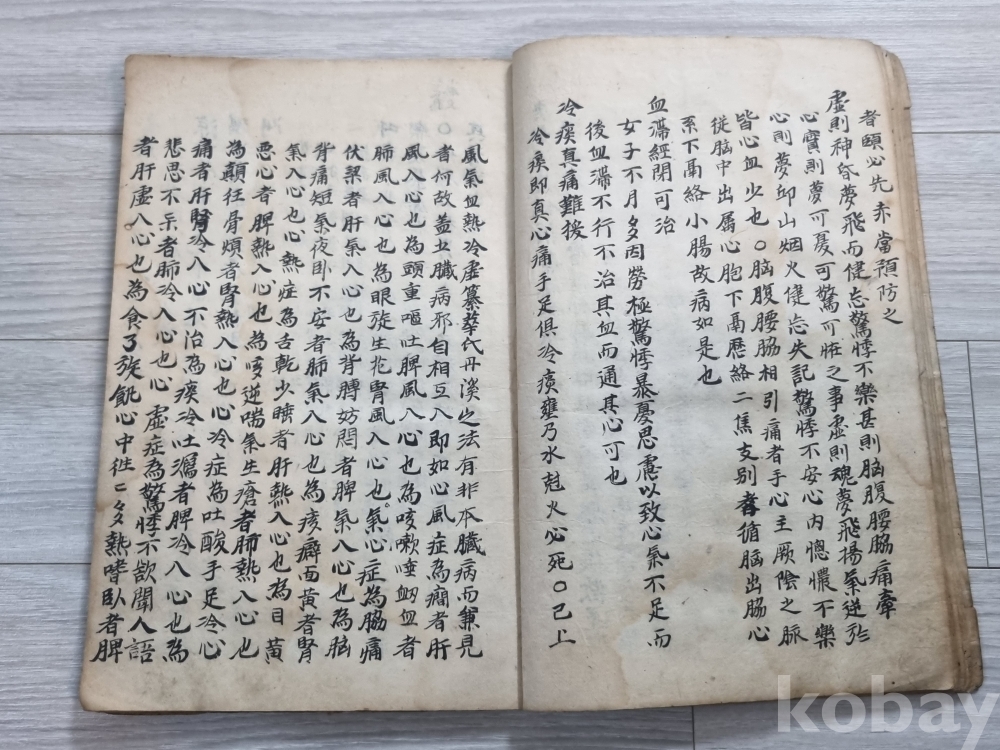 者頤必先赤當預防之
虛則神昏夢飛而健忘驚悸不樂甚則脳腹腰脇痛牽
心實則夢可憂可驚可恠之事虛則魂夢飛揚氣逆於
心則夢邱山烟火健忘失記驚悸不安心內憁憹不樂
皆心血少也〇脳腹腰脇相引痛者手心主厥陰之脈
從脳中出属心胞下鬲歷絡二焦支別者循脳出脇心
系下鬲絡小膓故病如是也
血滯經閉可治
女子不月多因勞極驚悸暴憂思慮以致心氣不足而
後血滯不行不治其血而通其心可也
冷痰真痛難後
冷痰即真心痛手足俱冷痰壅乃水尅火必死〇已上
風氣血熱冷虛纂華氏丹溪之法有非本臟病而兼見
〇者何故盖五臟病邪自相互入即如心風症為癎者肝
風入心也為頭重嘔吐脾風入心也為咳嗽唾衂血者
肺風入心也為眼旋生花腎風入心也氣心症為脇痛
伏梁者肝氣入心也為背膊妨悶者脾氣入心也為脳
背痛短氣夜卧不安者肺氣入心也為痎癖面黄者腎
氣入心也心熱症為舌乾少睛者肝熱入心也為目黄
悪心者脾熱入心也為咳逆喘氣生瘡者肺熱入心也
為顛狂骨煩者腎熱入心也心冷症為吐酸手足冷心
痛者肝腎冷入心不治為痰冷吐瀉者脾冷入心也為
悲思不乐者肺冷入心也心虛症為驚悸不欲聞人語
者肝虛入心也為食了旋飢心中徃二多熱嗜臥者脾